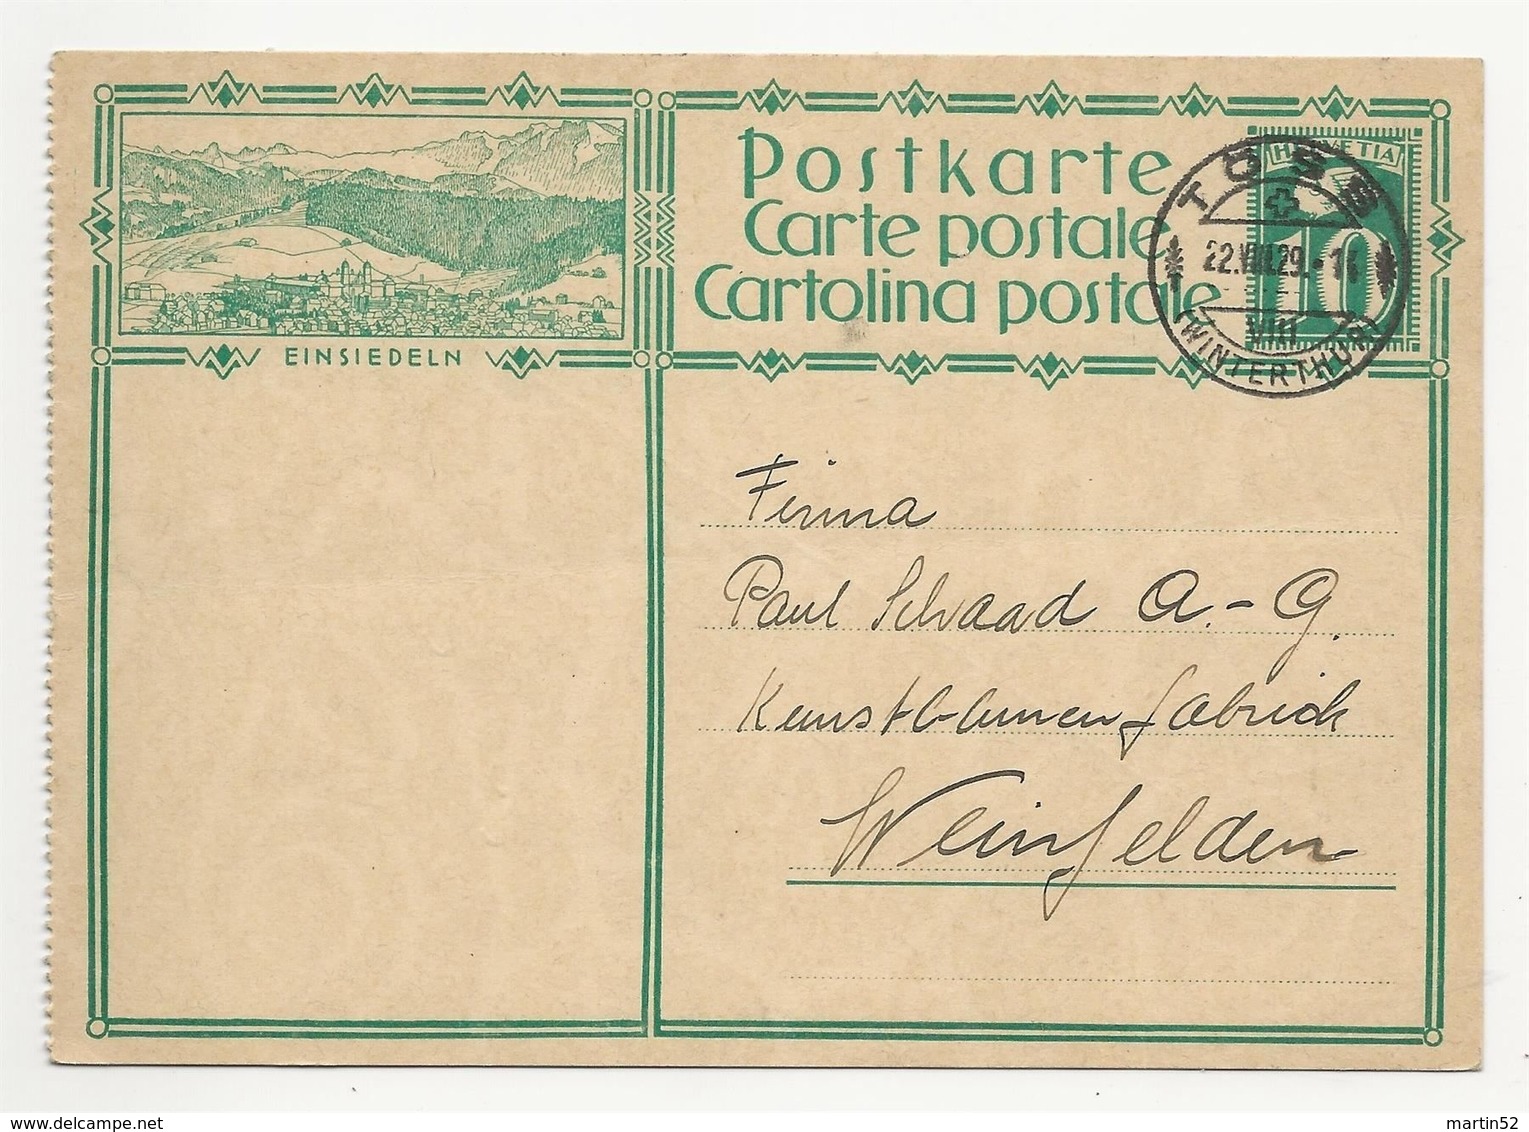 EINSIEDELN
Postkarte
Carte postale
Cartolina postale
HELVETIA
10
TÖSS
22.VIII.29.•14
VIII
(WINTERTHUR)
Firma
Paul Schaad A.-G.
Kunstblumenfabrick
Weinfelden
martin52
delcampe.net